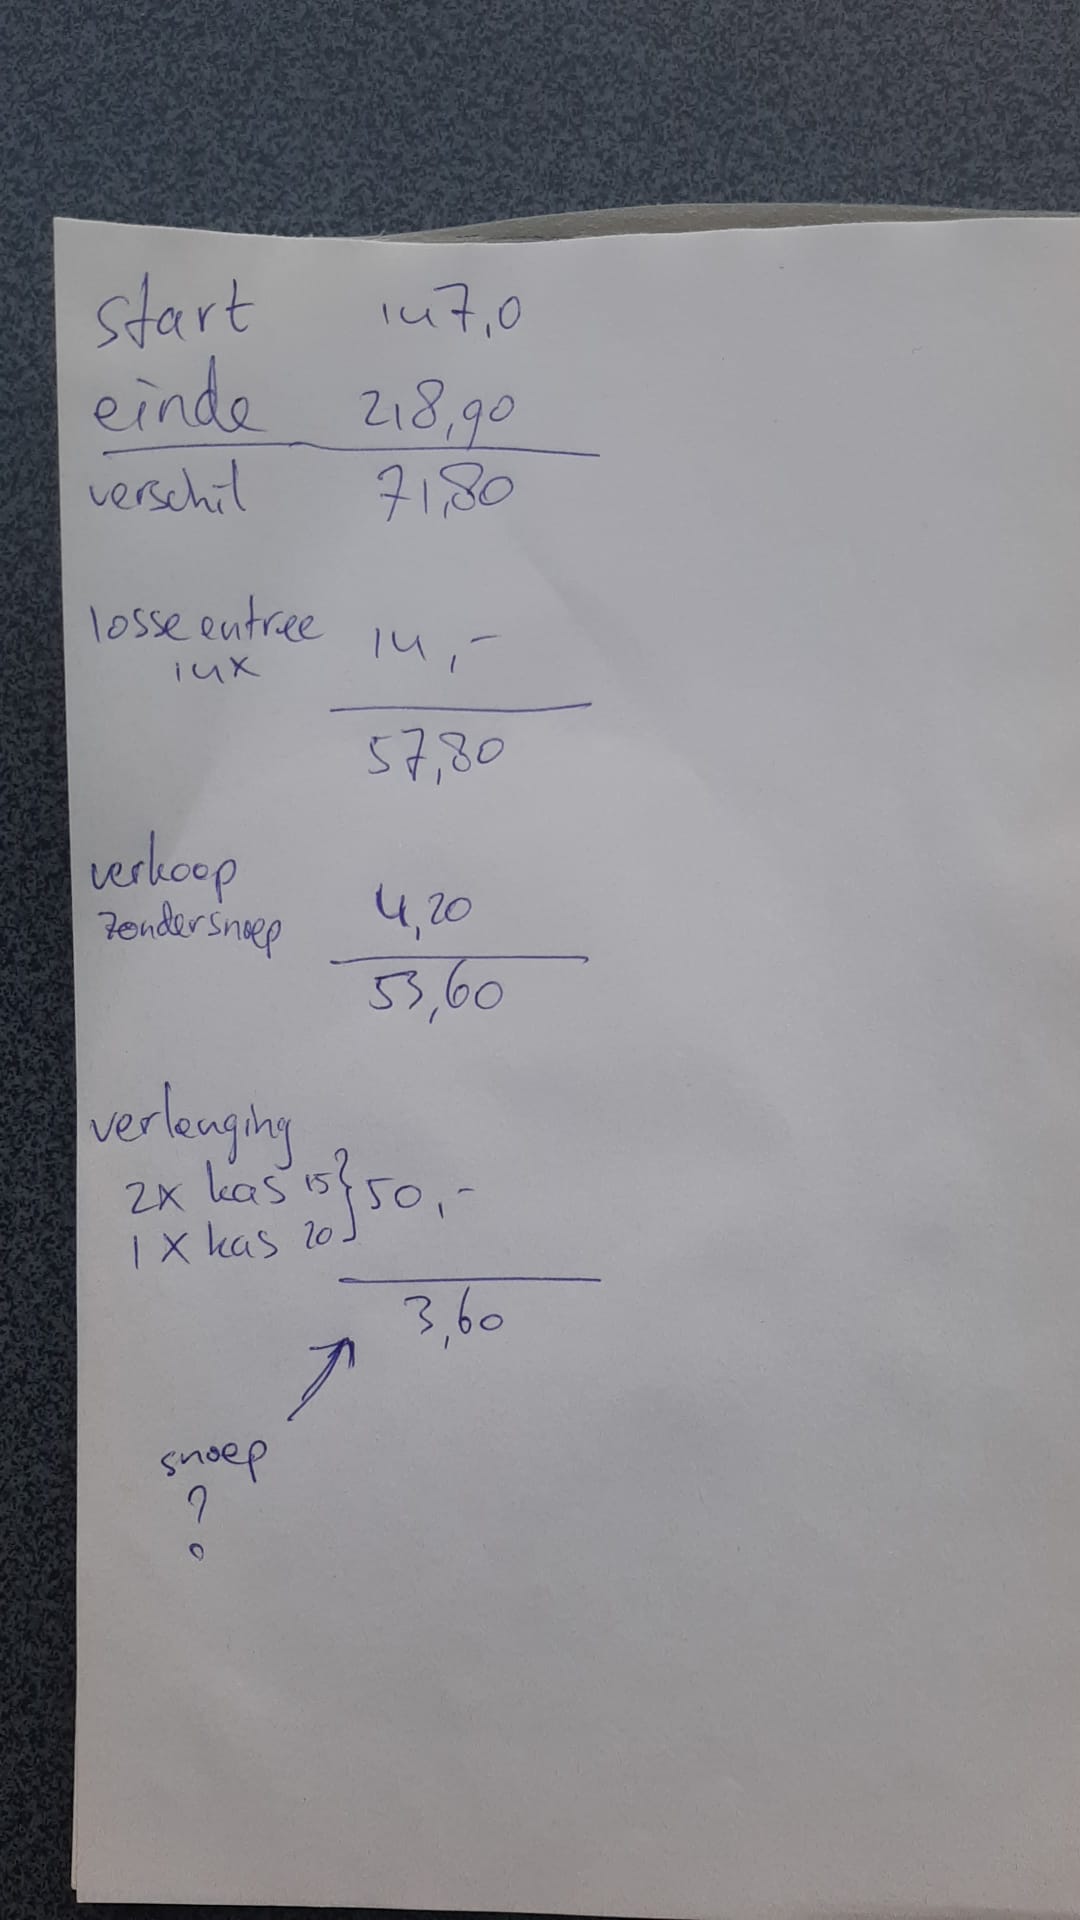 start 147,0
einde 218,90
verschil 71,80
losse entree 14,-
14x
57,80
verkoop
zonder snoep 4,20
53,60
verlenging
2x kas 15 } 50,-
1x kas 20
3,60
snoep
?